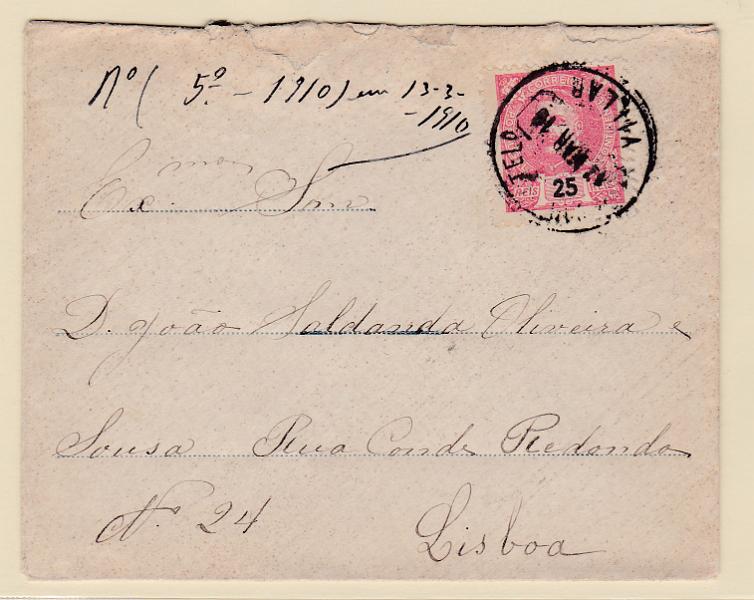 Nº ( 5º - 1910) em 13-3-
-1910
Exmo Snr
D. João Saldanda Oliveira e
Sousa Rua Conde Redondo
Nº 24 Lisboa
CORREIOS
25
REIS
TELO
VILLAR
12 MAR 10